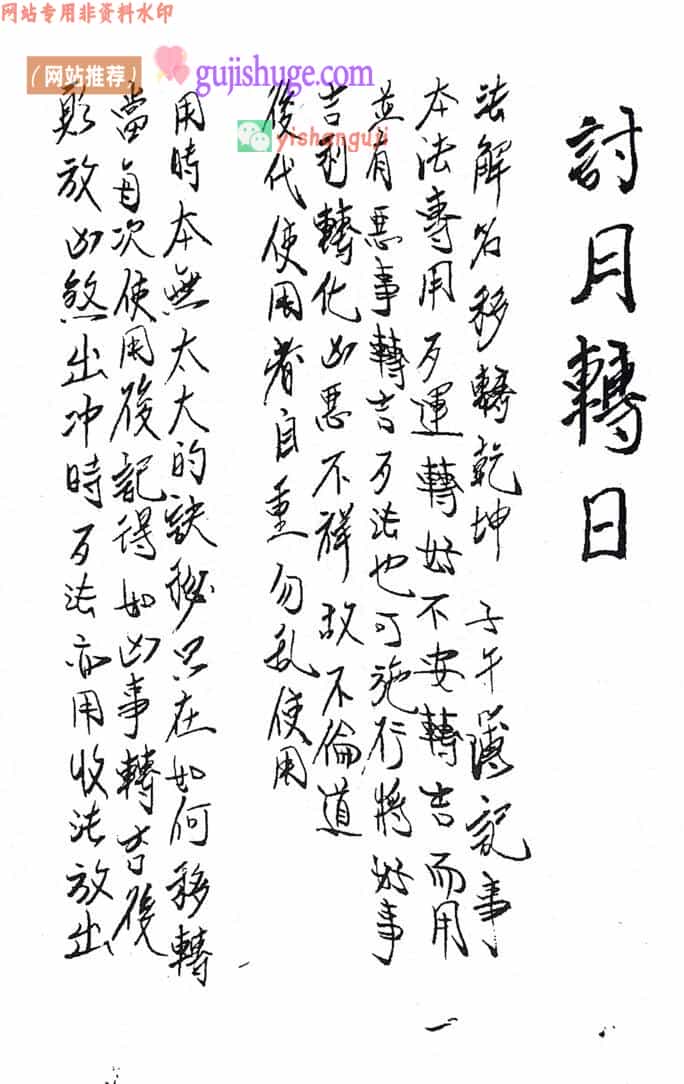 网站专用非资料水印
（网站推荐）
gujishuge.com
yishanguji
討月轉日
法解名移轉乾坤 子午簿記事
本法專用歹運轉好不安轉吉而用
並有惡事轉吉歹法也可施行將好事
吉利轉化凶惡不祥故不倫道
後代使用者自重勿乱使用
用時本無太大的訣秘只在如何移轉
當每次使用後記得如凶事轉吉後
放凶煞出冲時歹法亦用收法放出